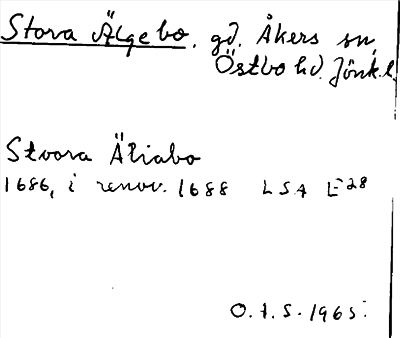 Stora Älgebo. gd. Åkers sn,
Östbo hd. Jönk.l.
Stoora Äliabo
1686, i renov. 1688 LSA E28
O.t.S. 1965.